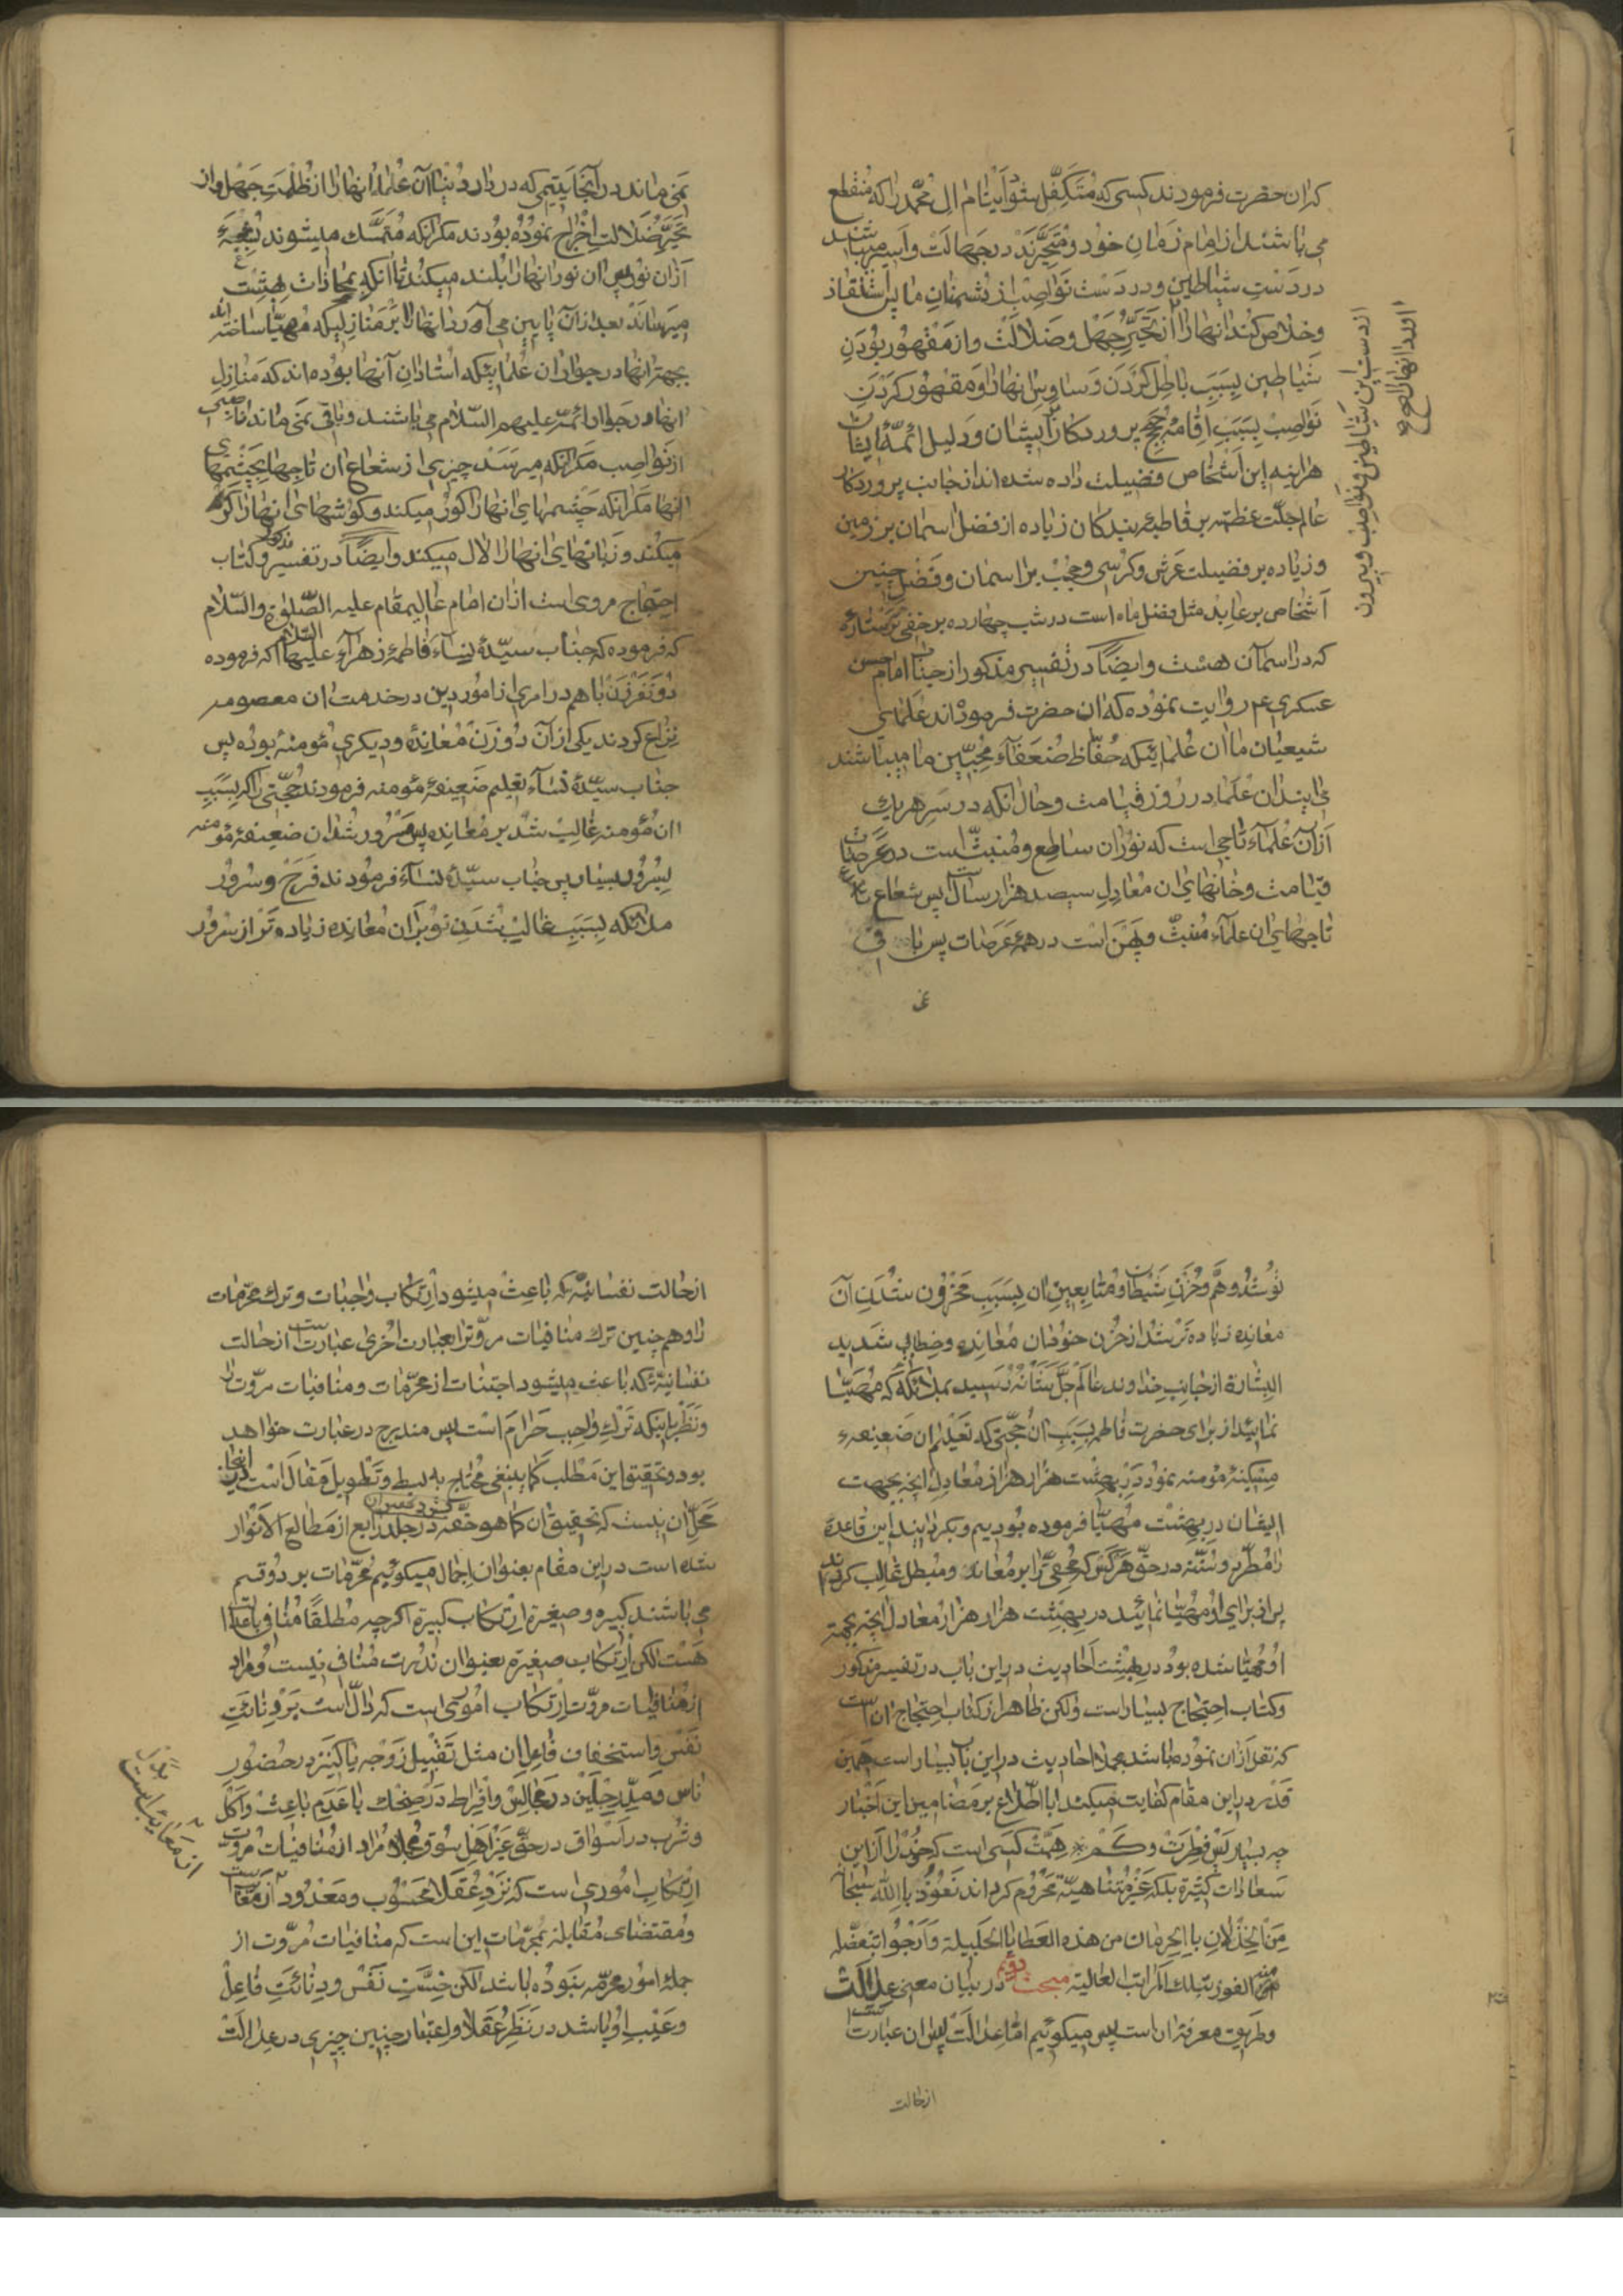 که ان حضرت فرمودند کسی که متکفل شود ایتام ال محمد را که منقطع
می باشند از امام زمان خود و متحیرند در جهالت و اسیر میباشند
در دست شیاطین و در دست نواصب از دشمنان ما پس استنقاذ
و خلاص کند انها را از تحیر جهل و ضلالت و از مقهور بودن
شیاطین بسبب باطل کردن وساوس انها را و مقهور کردن
نواصب بسبب اقامه حجج پروردکار ایشان و دلیل ائمه ایشان
هراینه این اشخاص فضیلت داده شده اند از جانب پروردکار
عالم جلت عظمته بر قاطبه بندکان زیاده از فضل اسمان بر زمین
و زیاده بر فضیلت عرش و کرسی و حجب بر اسمان و فضل چنین
اشخاص بر عابد مثل فضل ماه است در شب چهارده بر خفی تر ستاره
که در اسمان هست و ایضاً در تفسیر مذکور از جناب امام حسن
عسکری ع م روایت نموده که ان حضرت فرموده اند علمای
شیعیان ما ان علمائیکه حفاظ ضعفاء محبین ما میباشند
می ایند ان علما در روز قیامت و حال انکه در سر هر یک
از آن علماء تاجی است که نور ان ساطع و منبث است در عرصات
قیامت و خانهای ان معادل سیصد هزار سال پس شعاع
تاجهای ان علماء منبث و پهن است در همه عرصات پس باقی
از دست این شیاطین و نواصب و بیرون
اورد انها را صح
نمی ماند در آنجا یتیمی که در دار دنیا ان علما انها را از ظلمت جهل و از
تحیر ضلالت اخراج نموده بودند مکر انکه متمسک میشوند بشعبه
از ان نور پس ان نور انها را بلند میکند تا انکه بمحاذات بهشت
میرساند بعد از آن پایین می آورد انها را بر منازلیکه مهیا ساخته اند
بجهة انها در جوار ان علمائیکه استادان آنها بوده اند که منازل
انها در جوار ائمه علیهم السلام می باشند و باقی نمی ماند ناصبی
از نواصب مکر انکه میرسد چیزی از شعاع ان تاجها بچشمهای
انها مکر انکه چشمهای انها را کور میکند و کوشهای انها را کر
میکند و زبانهای انها را لال میکند و ایضاً در تفسیر مذکور و کتاب
احتجاج مروی است از ان امام عالیمقام علیه الصلوة والسلام
که فرموده که جناب سیده نساء فاطمه زهراء علیها السلام که فرموده
دو نفر زن با هم در امری از امور دین در خدمت ان معصومه
نزاع کردند یکی از آن دو زن معانده و دیکری مؤمنه بوده پس
جناب سیده نساء تعلیم ضعیفه مؤمنه فرمودند حجتی را که بسبب
ان مؤمنه غالب شد بر معانده پس مسرور شد ان ضعیفه مؤمنه
بسرور بسیار پس جناب سیده نساء فرمودند فرح و سرور
ملائکه بسبب غالب شدن تو بر ان معانده زیاده تر از سرور
تو شد و هم و حزن شیطان و متابعین ان بسبب محزون شدن آن
معانده زیاده تر شد از حزن خود ان معانده و خطاب شدید
البشارة از جانب خداوند عالم جل شانه رسید بملائکه که مهیا
نمائید از برای حضرت فاطمه بسبب ان حجتی که تعلیم ان ضعیفه
مسکینه مؤمنه نمود در بهشت هزار هزار معادل انچه بجهت
ایشان در بهشت مهیا فرموده بودیم و بکردانید این قاعده
را مطرد و سنة در حق هر کس که محقی را بر معاند و مبطل غالب کرداند
پس از برای او مهیا نمائید در بهشت هزار هزار معادل انچه بجهة
او مهیا شده بود در بهشت احادیث در این باب در تفسیر مذکور
و کتاب احتجاج بسیار است ولکن ظاهرا در کتاب احتجاج ان است
که نقل از ان نموده باشد مجملا احادیث در این باب بسیار است همین
قدر در این مقام کفایت میکند با اطلاع بر مضامین این اخبار
چه بسیار پس فطرت و کم همت کسی است که خود را از این
سعادات کثیره بلکه غیر متناهیة محروم کرداند نعوذ بالله سبحانه
من الخذلان بالحرمان من هذه العطایا الجلیلة و ارجو بتفضله
الفوز بتلک المراتب العالیة مبحث دویم در بیان معنی عدالت
و طریق معرفة ان است پس میکوئیم اما عدالت پس ان عبارتست
از حالت
از حالت نفسانیه که باعث میشود ارتکاب واجبات و ترک محرمات
را و هم چنین ترک منافیات مروت را بعبارت اخری عبارتست از حالت
نفسانیة که باعث میشود اجتناب از محرمات و منافیات مروت را
و نظر باینکه ترک واجب حرام است پس مندرج در عبارت خواهد
بود و تحقیق این مطلب کما ینبغی محتاج به بسط و تطویل مقال است در اینجا
محل ان نیست که تحقیق ان کما هو حقه در جلد رابع از مطالع الانوار
شده است در این مقام بعنوان اجمال میکوئیم محرمات بر دو قسم
می باشند کبیره و صغیره ارتکاب کبیرة اکرچه مطلقاً منافی با عدالت
هست لکن ارتکاب صغیره بعنوان ندرت منافی نیست و مراد
از منافیات مروت ارتکاب اموری است که دال است بر دنائت
نفس و استخفاف فاعل ان مثل تقبیل زوجه یا کنیز در حضور
ناس و مد رجلین در مجالس و افراط در ضحک با عدم باعث و اکل
و شرب در اسواق در حق غیر اهل سوق و مجملا مراد از منافیات مروت
ارتکاب اموری است که نزد عقلا محسوب و معدود از معایب است
و مقتضای مقابله بمحرمات این است که منافیات مروت از
جمله امور محرمه نبوده باشد لکن خست نفس و دنائت فاعل
و عیب او باشد در نظر عقلا و اعتبار چنین چیزی در عدالت